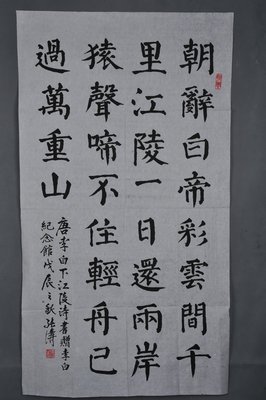 朝辭白帝彩雲間千
里江陵一日還兩岸
猿聲啼不住輕舟已
過萬重山
唐李白下江陵詩書贈李白
紀念館戊辰之秋